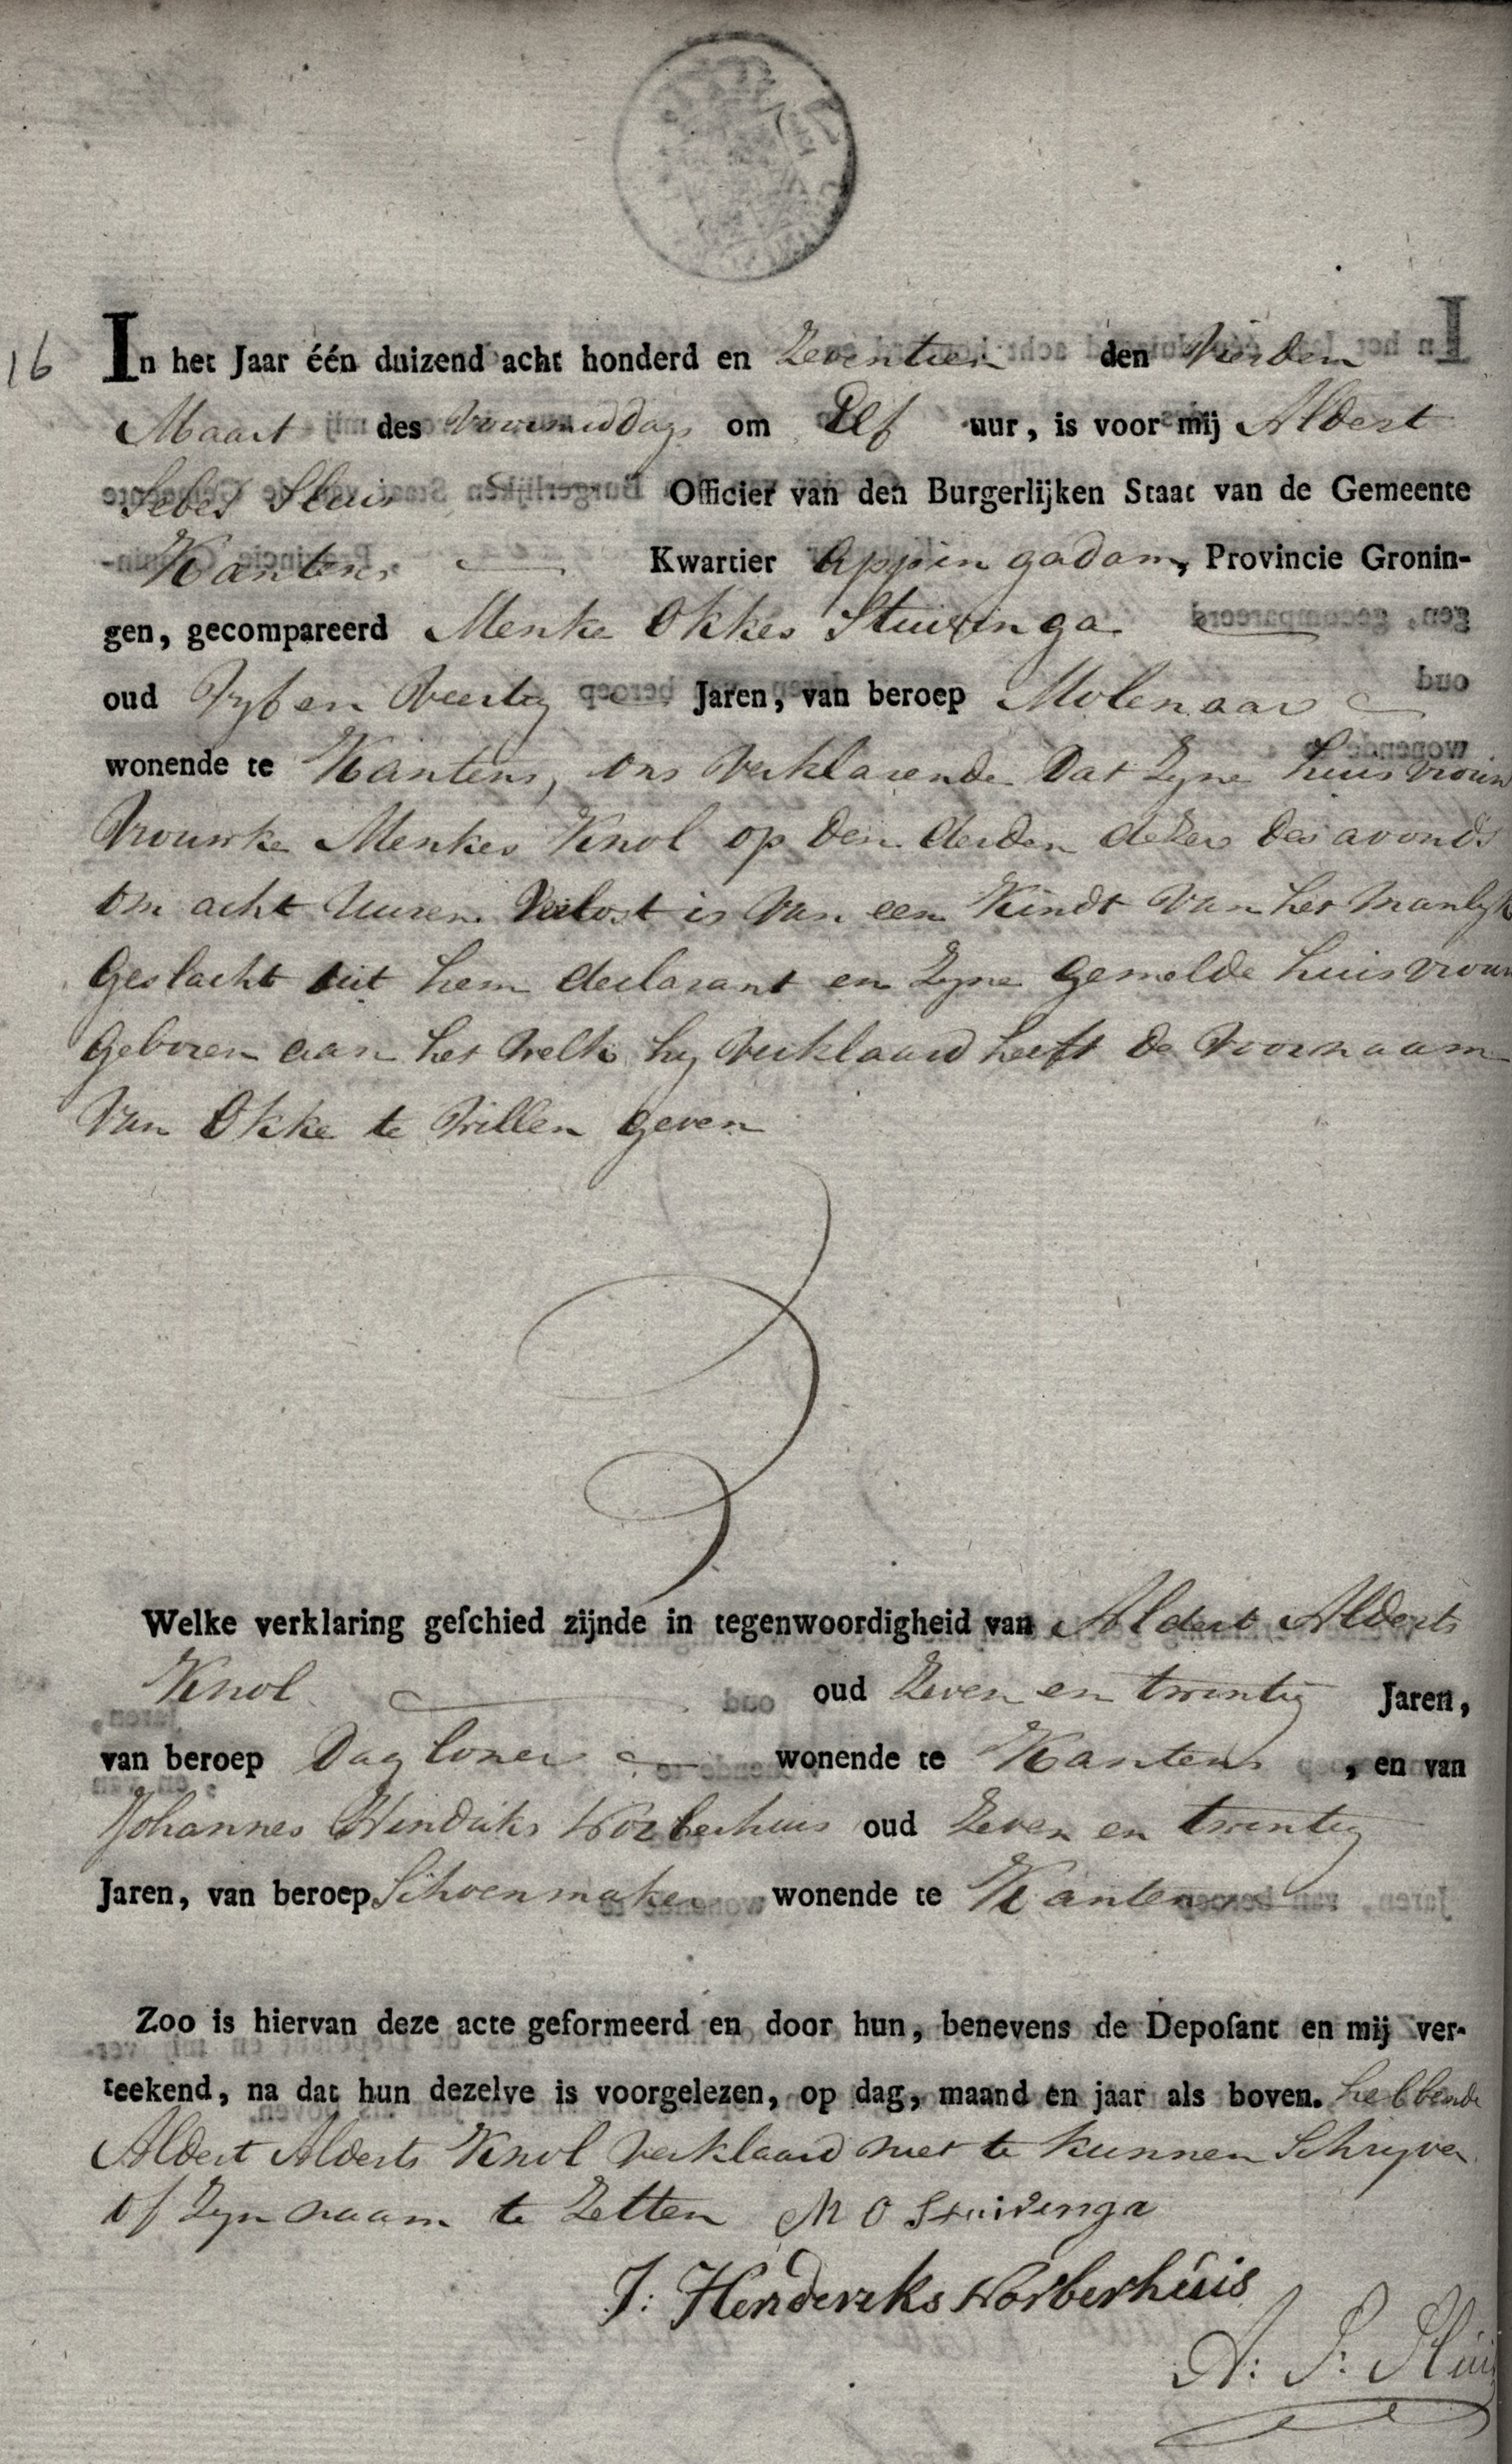 16
In het Jaar één duizend acht honderd en Zeventien den Vierden
Maart des Voormiddags om Elf uur, is voor mij Aldert
Sebes Sluis Officier van den Burgerlijken Staat van de Gemeente
Kantens Kwartier Appingadam, Provincie Gronin-
gen, gecompareerd Menke Okkes Stuivinga
oud Vyf en Veertig Jaren, van beroep Molenaar
wonende te Kantens, ons Verklarende Dat Zyne huisvrouw
Vrouwke Menkes Knol op den derden dezer des avonds
om acht Uuren Verlost is Van een Kindt Van het Manlyk
Geslacht uit hem declarant en Zyne gemelde huisvrouw
Geboren aan het Welk hy Verklaard heeft de Voornaam
Van Okke te Willen geven
Welke verklaring geſchied zijnde in tegenwoordigheid van Aldert Alderts
Knol oud Zeven en twintig Jaren,
van beroep Dagloner wonende te Kantens, en van
Johannes Hindriks Worberhuis oud Zeven en twintig
Jaren, van beroep Schoenmaker wonende te Kantens
Zoo is hiervan deze acte geformeerd en door hun, benevens de Depoſant en mij ver-
teekend, na dat hun dezelve is voorgelezen, op dag, maand en jaar als boven. hebbende
Aldert Alderts Knol Verklaard niet te kunnen Schryven
of Zyn naam te Zetten M O Stuivinga
J: Hendereks Worberhuis
A: S: Sluis